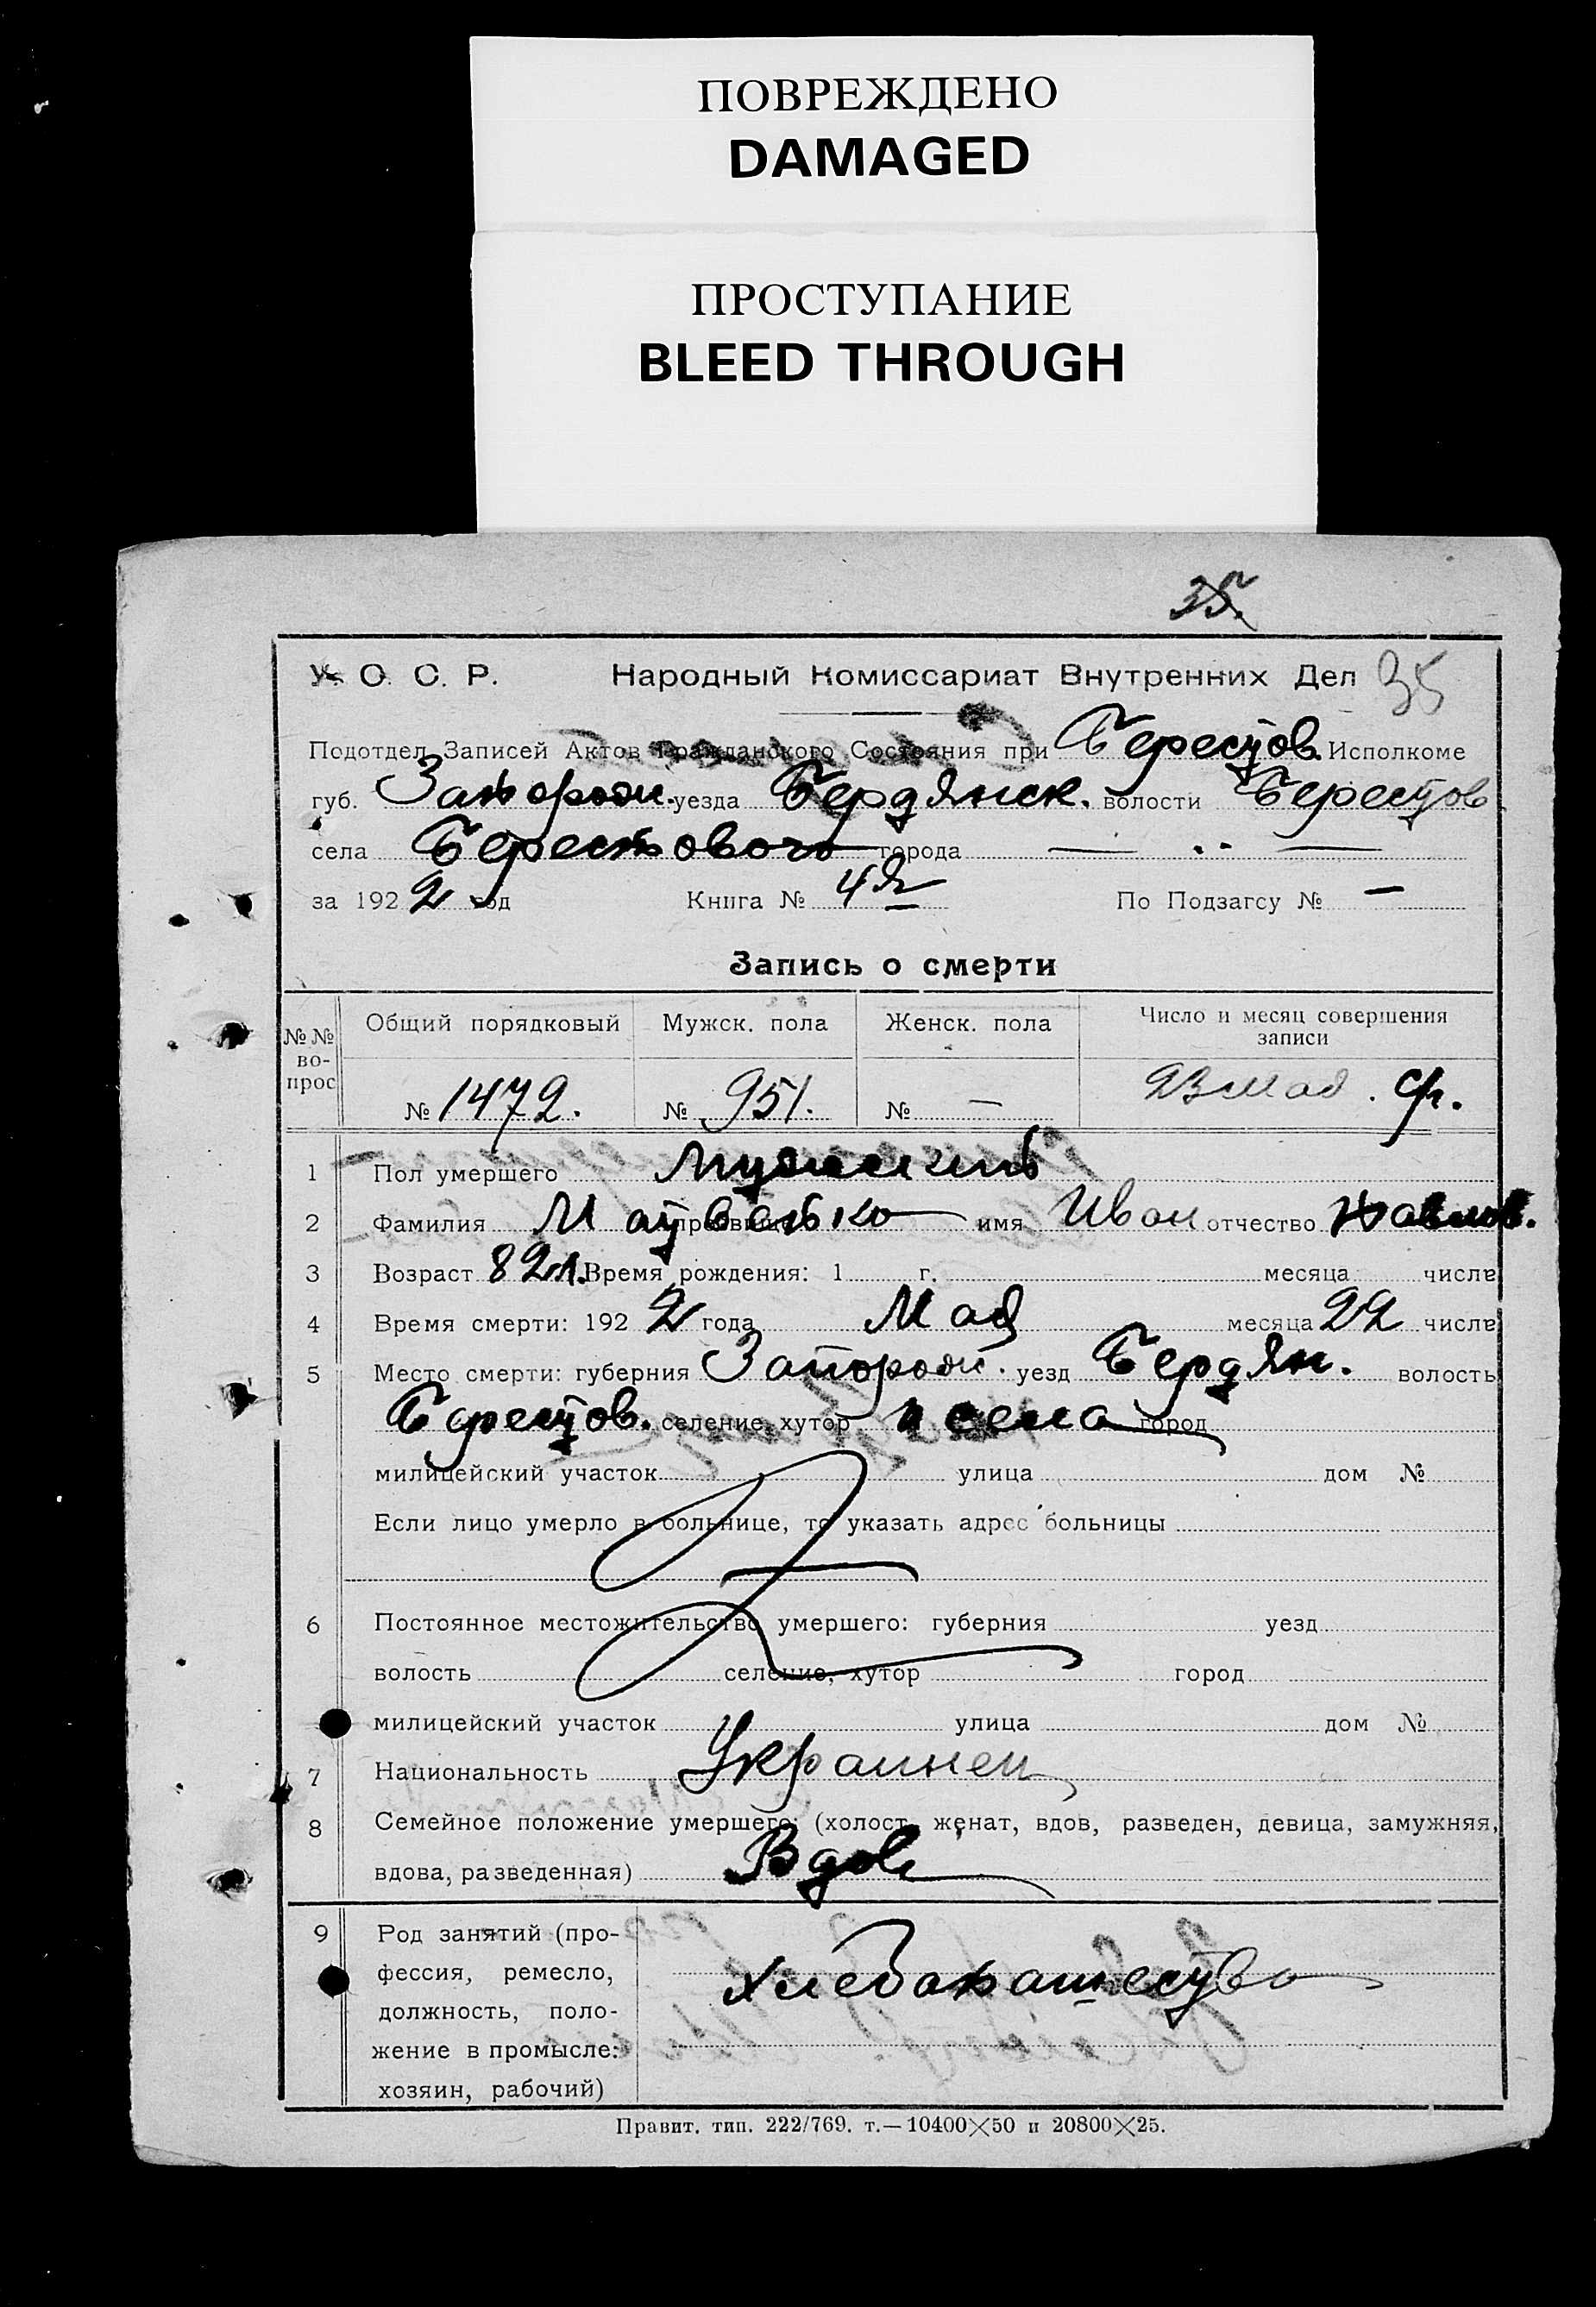 ПОВРЕЖДЕНО
DAMAGED
ПРОСТУПАНИЕ
BLEED THROUGH
35.
У. С. С. Р. Народный Комиссариат Внутренних Дел 35
Подотдел Записей Актов Гражданского Состояния при Берестов. Исполкоме
губ. Запорож. уезда Бердянск. волости Берестов
села Берестового города — „ —
за 1922 год Книга № 4я По Подзагсу № —
Запись о смерти
№№ во-прос Общий порядковый Мужск. пола Женск. пола Число и месяц совершения записи
№ 1472. № 951. № — 23 мая.
1 Пол умершего Мужский
2 Фамилия прозвище Матвейко имя Иван отчество Павлов.
3 Возраст 82 л. Время рождения: 1 г. месяца числа
4 Время смерти: 1922 года Мая месяца 22 числа
5 Место смерти: губерния Запорож. уезд Бердян. волость
Берестов. селение, хутор села город
милицейский участок улица дом №
Если лицо умерло в больнице, то указать адрес больницы
6 Постоянное местожительство умершего: губерния уезд
волость селение, хутор город
милицейский участок улица дом №
7 Национальность Украинец
8 Семейное положение умершего: (холост, женат, вдов, разведен, девица, замужняя,
вдова, разведенная) Вдов
9 Род занятий (про-
фессия, ремесло,
должность, поло-
жение в промысле:
хозяин, рабочий)
Хлебопашество
Правит. тип. 222/769. т.—10400×50 и 20800×25.